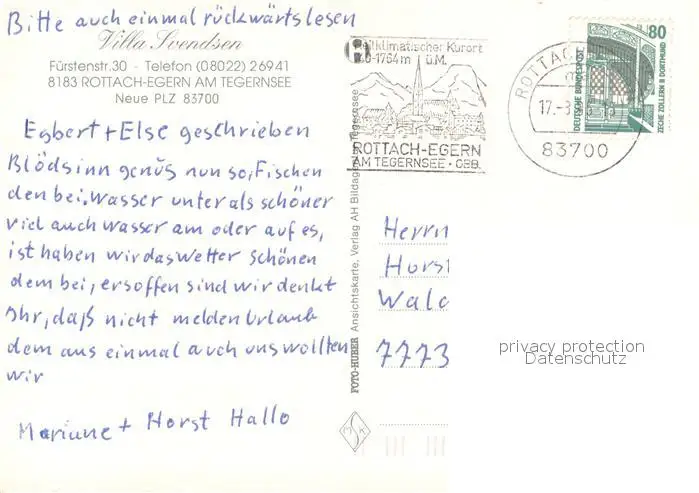 Bitte auch einmal rückwärts lesen
Villa Svendsen
Fürstenstr.30 - Telefon (08022) 26941
8183 ROTTACH-EGERN AM TEGERNSEE
Neue PLZ 83700
Egbert + Else geschrieben
Blödsinn genug nun so, Fischen
den bei. Wasser unter als schöner
viel auch Wasser am oder auf es,
ist haben wir das Wetter schönen
dem bei, ersoffen sind wir denkt
Ihr, daß nicht melden Urlaub
dem aus einmal auch uns wollten
wir
Mariane + Horst Hallo
heilklimatischer Kurort
740-1764 m ü.M.
ROTTACH-EGERN
AM TEGERNSEE · OBB.
ROTTACH
17.-8
83700
80
DEUTSCHE BUNDESPOST
ZECHE ZOLLERN II DORTMUND
FOTO-HUBER Ansichtskarte, Verlag AH Bildagentur Tegernsee
Herrn
Horst
Wald
7773
privacy protection
Datenschutz